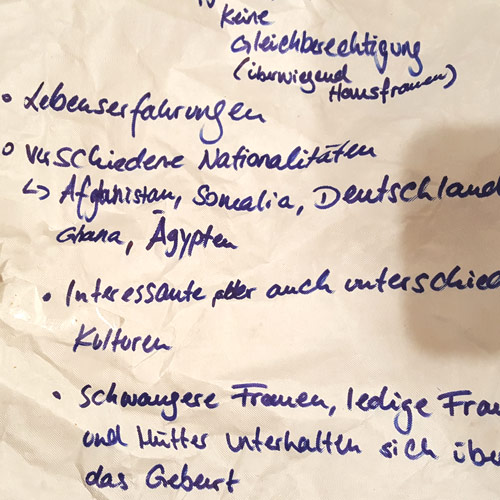 keine
Gleichberechtigung
(überwiegend
Hausfrauen)
• Lebenserfahrungen
• verschiedene Nationalitäten
↳ Afghanistan, Somalia, Deutschland
Ghana, Ägypten
• Interessante aber auch unterschied
Kulturen
• schwangere Frauen, ledige Frau
und Mütter unterhalten sich über
das Geburt